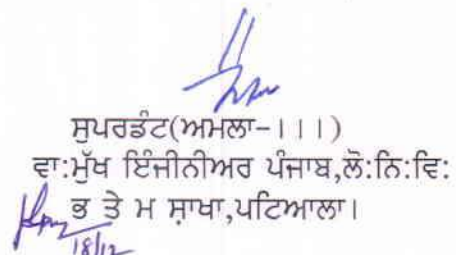 ਸੁਪਰਡੰਟ(ਅਮਲਾ-।।।)
ਵਾ:ਮੁੱਖ ਇੰਜੀਨੀਅਰ ਪੰਜਾਬ,ਲੋ:ਨਿ:ਵਿ:
ਭ ਤੇ ਮ ਸ਼ਾਖਾ,ਪਟਿਆਲਾ।
18/12